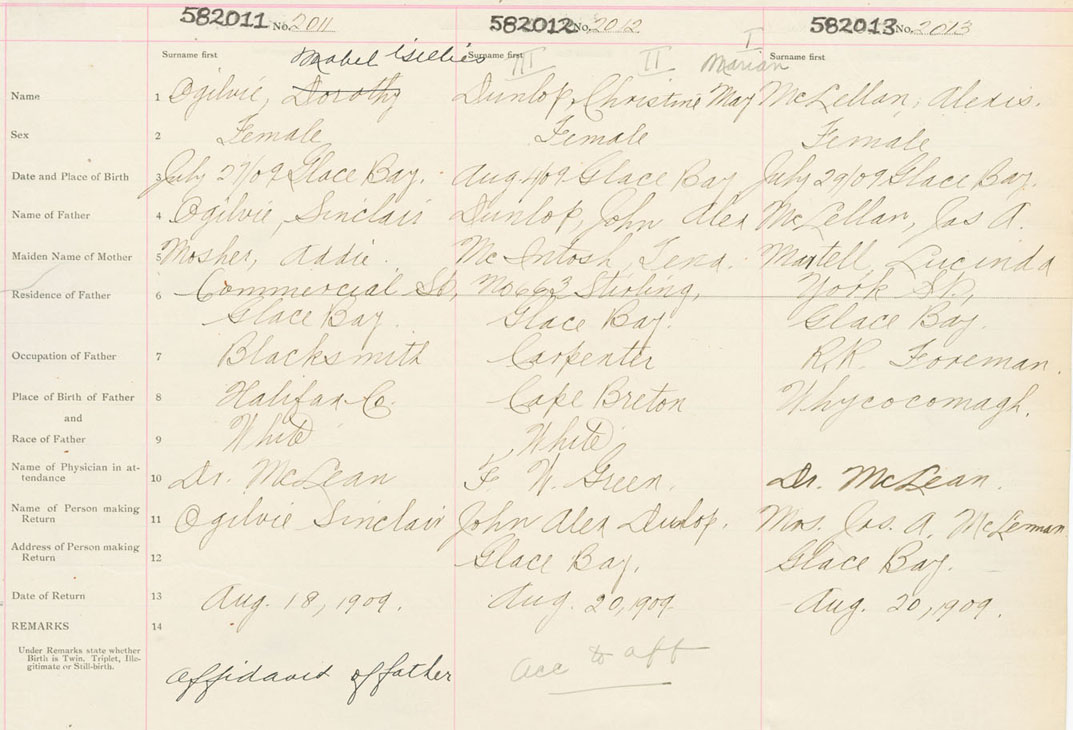 582011 No. 2011 582012 No. 2012 582013 No. 2013
Surname first Mabel Gillies Surname first III II I Marian Surname first
Name 1 Ogilvie, Dorothy Dunlop, Christine May McLellan, Alexis.
Sex 2 Female Female Female
Date and Place of Birth 3 July 27/09 Glace Bay. Aug 4/09 Glace Bay July 29/09 Glace Bay.
Name of Father 4 Ogilvie, Sinclair Dunlop, John Alex McLellan, Jas A.
Maiden Name of Mother 5 Mosher, Addie. McIntosh, Tena. Martell, Lucinda
Residence of Father 6 Commercial St, No 663 Stirling, York St,
Glace Bay. Glace Bay. Glace Bay.
Occupation of Father 7 Blacksmith Carpenter R.R. Foreman.
Place of Birth of Father 8 Halifax Co. Cape Breton Whycocomagh.
and
Race of Father 9 White White
Name of Physician in at-
tendance 10 Dr. McLean F W. Green. Dr. McLean.
Name of Person making
Return 11 Ogilvie Sinclair John Alex Dunlop. Mrs. Jas. A. McLennan
Address of Person making
Return 12 Glace Bay. Glace Bay.
Date of Return 13 Aug. 18, 1909. Aug. 20, 1909 Aug. 20, 1909.
REMARKS 14
Under Remarks state whether
Birth is Twin. Triplet, Ille-
gitimate or Still-birth.
Affidavid of father acc to aff